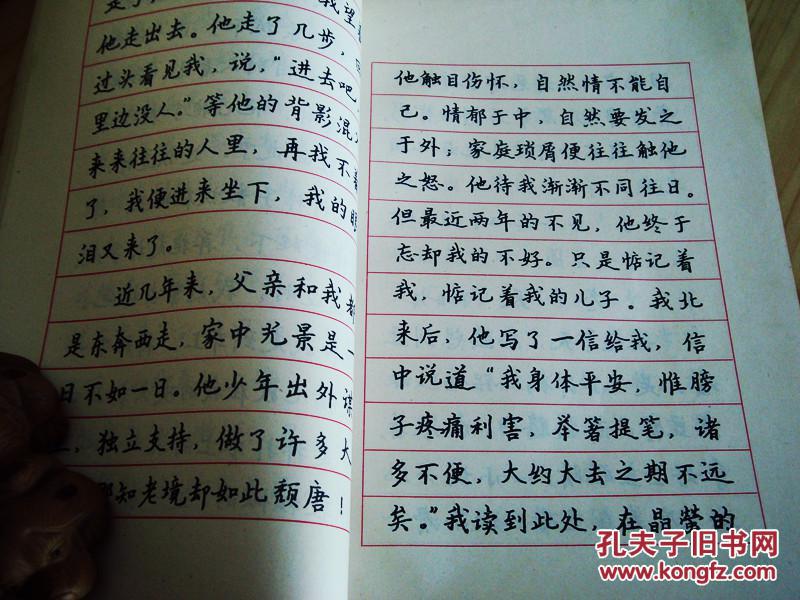 我望
他走出去。他走了几步，
过头看见我，说，“进去吧
里边没人。”等他的背影混
来来往往的人里，再我不着
了，我便进来坐下，我的眼
泪又来了。
近几年来，父亲和我都
是东奔西走，家中光景是一
日不如一日。他少年出外谋
，独立支持，做了许多大
那知老境却如此颓唐！
他触目伤怀，自然情不能自
己。情郁于中，自然要发之
于外；家庭琐屑便往往触他
之怒。他待我渐渐不同往日。
但最近两年的不见，他终于
忘却我的不好。只是惦记着
我，惦记着我的儿子。我北
来后，他写了一信给我，信
中说道“我身体平安，惟膀
子疼痛利害，举箸提笔，诸
多不便，大约大去之期不远
矣。”我读到此处，在晶莹的
孔夫子旧书网
www.kongfz.com